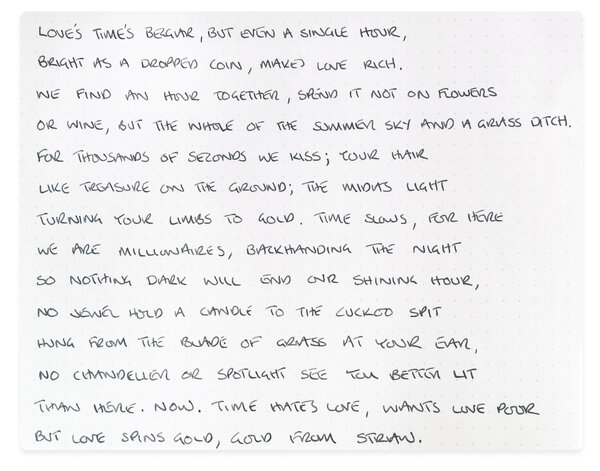 LOVE'S TIME'S BEGGAR, BUT EVEN A SINGLE HOUR,
BRIGHT AS A DROPPED COIN, MAKES LOVE RICH.
WE FIND AN HOUR TOGETHER, SPEND IT NOT ON FLOWERS
OR WINE, BUT THE WHOLE OF THE SUMMER SKY AND A GRASS DITCH.
FOR THOUSANDS OF SECONDS WE KISS; YOUR HAIR
LIKE TREASURE ON THE GROUND; THE MIDAS LIGHT
TURNING YOUR LIMBS TO GOLD. TIME SLOWS, FOR HERE
WE ARE MILLIONAIRES, BACKHANDING THE NIGHT
SO NOTHING DARK WILL END OUR SHINING HOUR,
NO JEWEL HOLD A CANDLE TO THE CUCKOO SPIT
HUNG FROM THE BLADE OF GRASS AT YOUR EAR,
NO CHANDELIER OR SPOTLIGHT SEE YOU BETTER LIT
THAN HERE. NOW. TIME HATES LOVE, WANTS LOVE POOR
BUT LOVE SPINS GOLD, GOLD FROM STRAW.